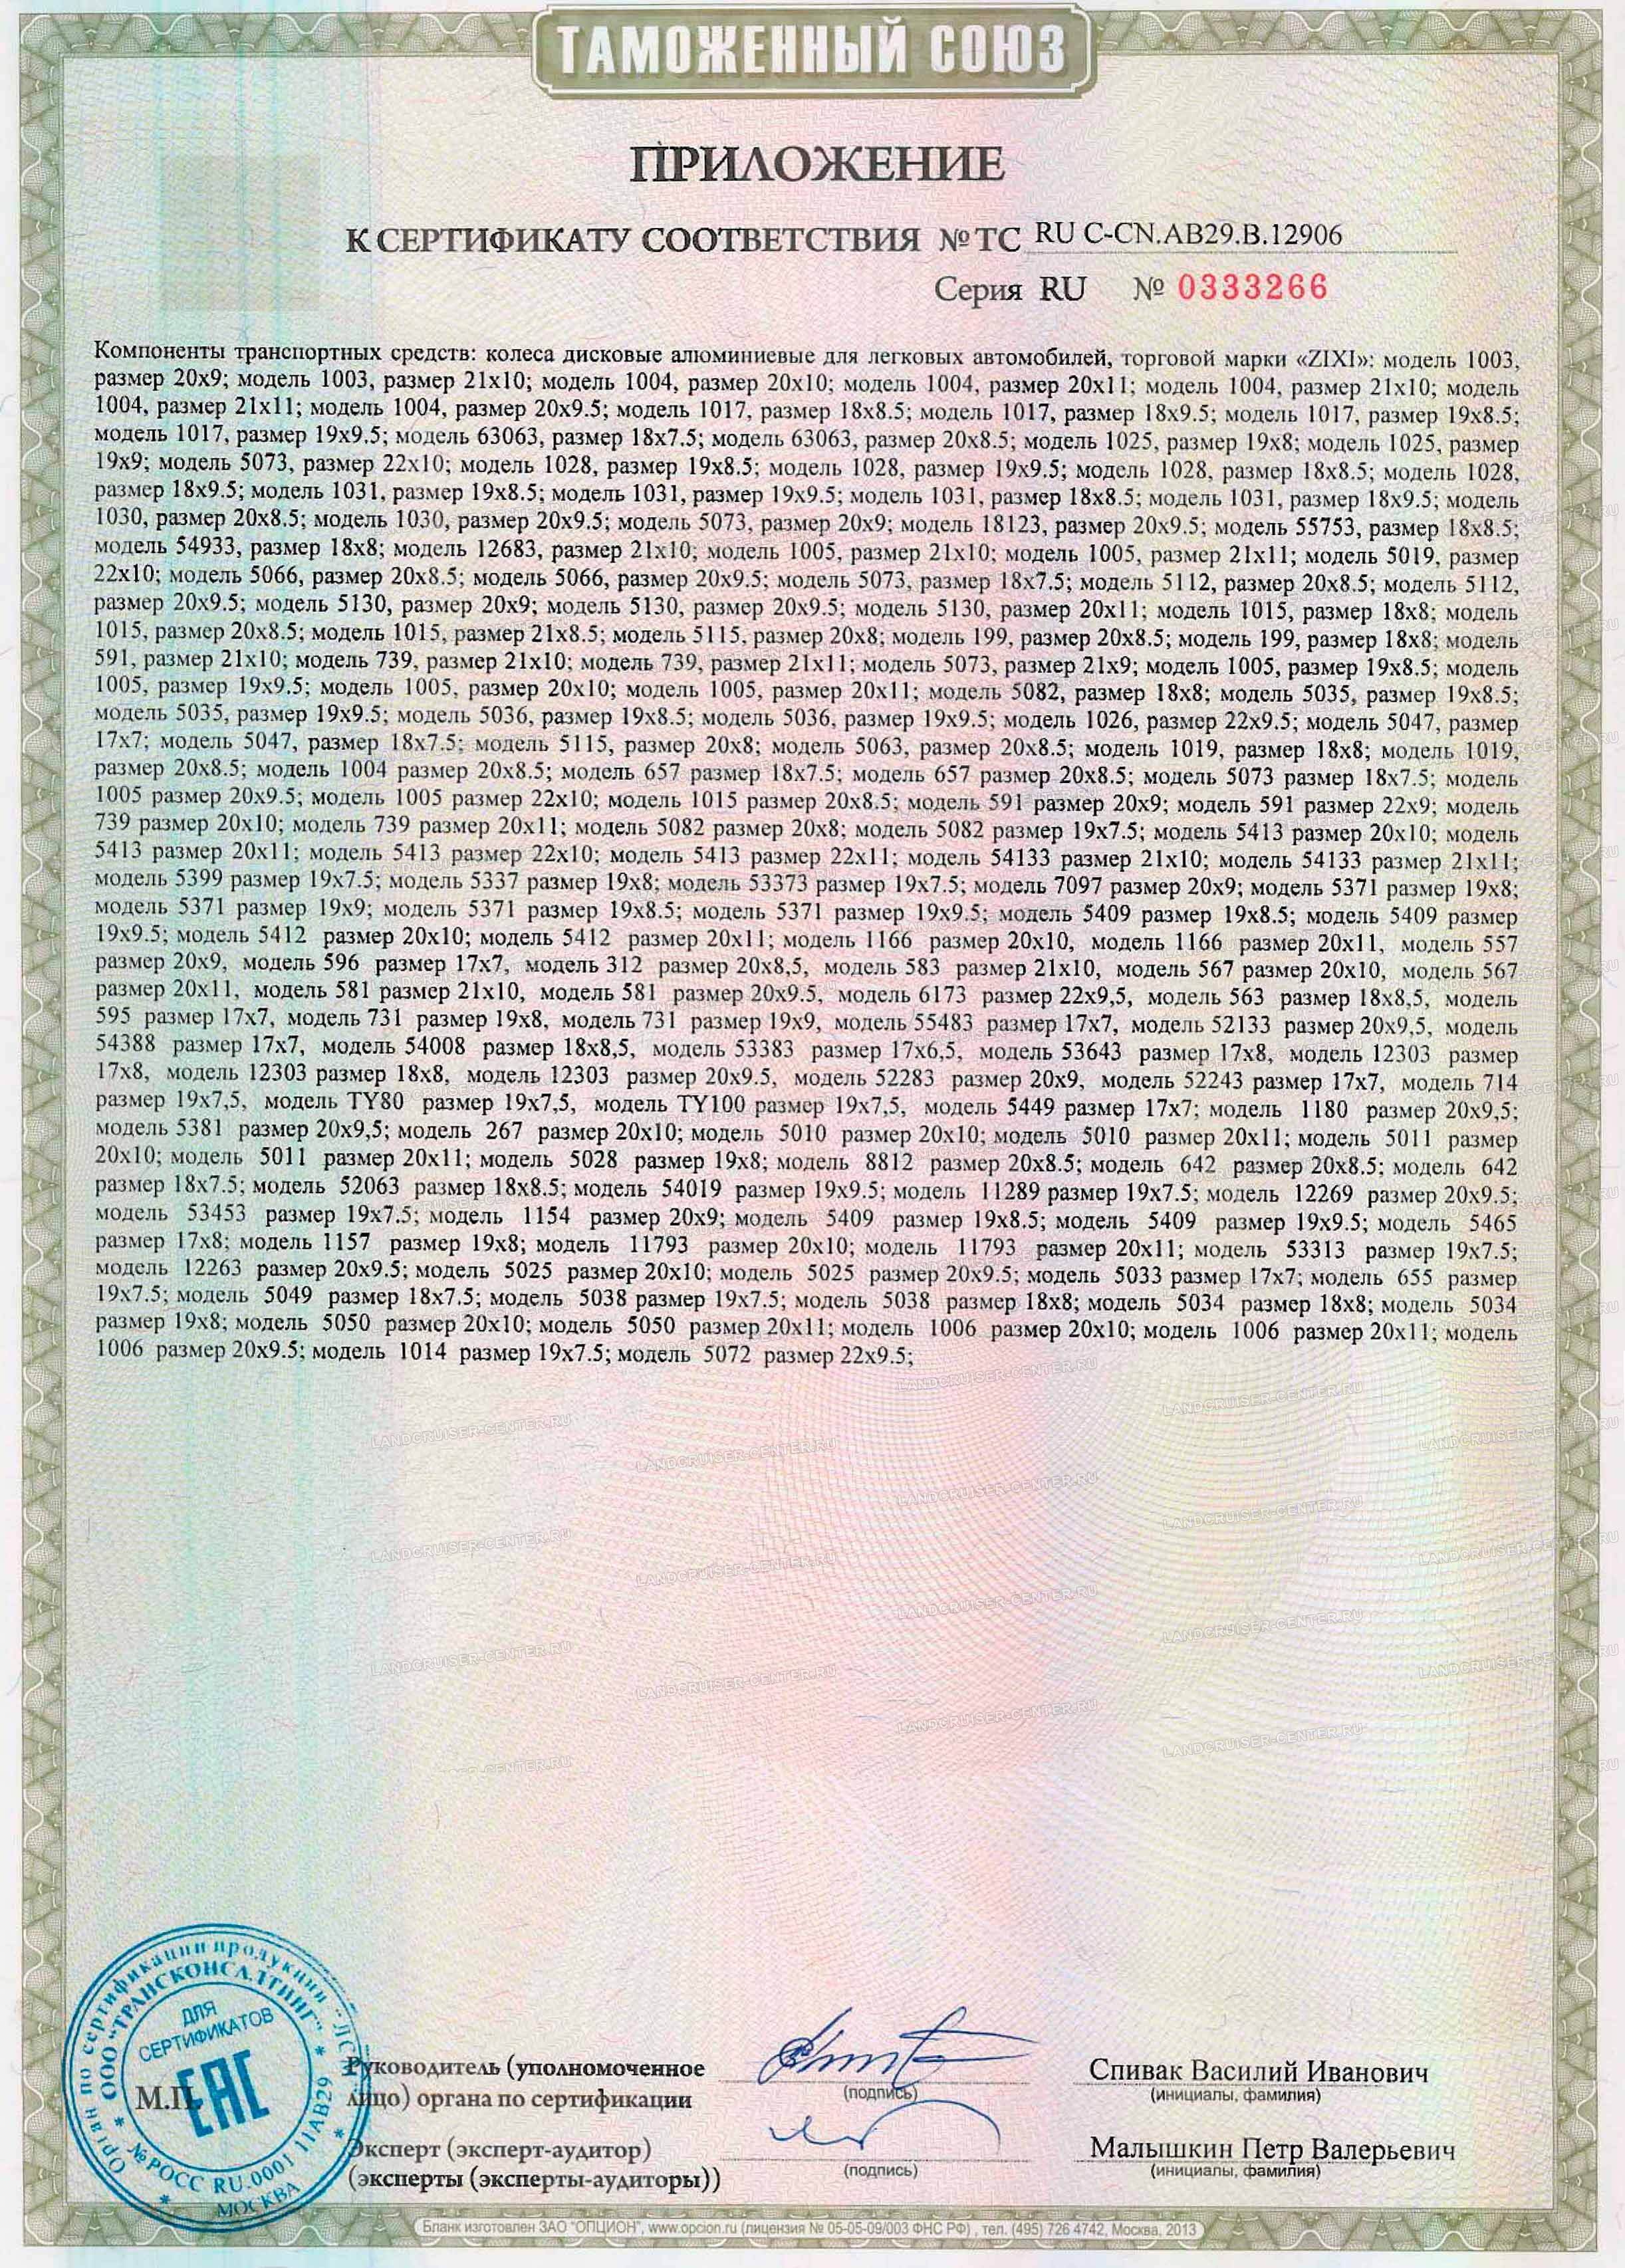 ТАМОЖЕННЫЙ СОЮЗ
ПРИЛОЖЕНИЕ
К СЕРТИФИКАТУ СООТВЕТСТВИЯ № ТС RU C-CN.AB29.B.12906
Серия RU № 0333266
Компоненты транспортных средств: колеса дисковые алюминиевые для легковых автомобилей, торговой марки «ZIXI»: модель 1003,
размер 20x9; модель 1003, размер 21x10; модель 1004, размер 20x10; модель 1004, размер 20x11; модель 1004, размер 21x10; модель
1004, размер 21x11; модель 1004, размер 20x9.5; модель 1017, размер 18x8.5; модель 1017, размер 18x9.5; модель 1017, размер 19x8.5;
модель 1017, размер 19x9.5; модель 63063, размер 18x7.5; модель 63063, размер 20x8.5; модель 1025, размер 19x8; модель 1025, размер
19x9; модель 5073, размер 22x10; модель 1028, размер 19x8.5; модель 1028, размер 19x9.5; модель 1028, размер 18x8.5; модель 1028,
размер 18x9.5; модель 1031, размер 19x8.5; модель 1031, размер 19x9.5; модель 1031, размер 18x8.5; модель 1031, размер 18x9.5; модель
1030, размер 20x8.5; модель 1030, размер 20x9.5; модель 5073, размер 20x9; модель 18123, размер 20x9.5; модель 55753, размер 18x8.5;
модель 54933, размер 18x8; модель 12683, размер 21x10; модель 1005, размер 21x10; модель 1005, размер 21x11; модель 5019, размер
22x10; модель 5066, размер 20x8.5; модель 5066, размер 20x9.5; модель 5073, размер 18x7.5; модель 5112, размер 20x8.5; модель 5112,
размер 20x9.5; модель 5130, размер 20x9; модель 5130, размер 20x9.5; модель 5130, размер 20x11; модель 1015, размер 18x8; модель
1015, размер 20x8.5; модель 1015, размер 21x8.5; модель 5115, размер 20x8; модель 199, размер 20x8.5; модель 199, размер 18x8; модель
591, размер 21x10; модель 739, размер 21x10; модель 739, размер 21x11; модель 5073, размер 21x9; модель 1005, размер 19x8.5; модель
1005, размер 19x9.5; модель 1005, размер 20x10; модель 1005, размер 20x11; модель 5082, размер 18x8; модель 5035, размер 19x8.5;
модель 5035, размер 19x9.5; модель 5036, размер 19x8.5; модель 5036, размер 19x9.5; модель 1026, размер 22x9.5; модель 5047, размер
17x7; модель 5047, размер 18x7.5; модель 5115, размер 20x8; модель 5063, размер 20x8.5; модель 1019, размер 18x8; модель 1019,
размер 20x8.5; модель 1004 размер 20x8.5; модель 657 размер 18x7.5; модель 657 размер 20x8.5; модель 5073 размер 18x7.5; модель
1005 размер 20x9.5; модель 1005 размер 22x10; модель 1015 размер 20x8.5; модель 591 размер 20x9; модель 591 размер 22x9; модель
739 размер 20x10; модель 739 размер 20x11; модель 5082 размер 20x8; модель 5082 размер 19x7.5; модель 5413 размер 20x10; модель
5413 размер 20x11; модель 5413 размер 22x10; модель 5413 размер 22x11; модель 54133 размер 21x10; модель 54133 размер 21x11;
модель 5399 размер 19x7.5; модель 5337 размер 19x8; модель 53373 размер 19x7.5; модель 7097 размер 20x9; модель 5371 размер 19x8;
модель 5371 размер 19x9; модель 5371 размер 19x8.5; модель 5371 размер 19x9.5; модель 5409 размер 19x8.5; модель 5409 размер
19x9.5; модель 5412 размер 20x10; модель 5412 размер 20x11; модель 1166 размер 20x10, модель 1166 размер 20x11, модель 557
размер 20x9, модель 596 размер 17x7, модель 312 размер 20x8,5, модель 583 размер 21x10, модель 567 размер 20x10, модель 567
размер 20x11, модель 581 размер 21x10, модель 581 размер 20x9.5, модель 6173 размер 22x9,5, модель 563 размер 18x8,5, модель
595 размер 17x7, модель 731 размер 19x8, модель 731 размер 19x9, модель 55483 размер 17x7, модель 52133 размер 20x9,5, модель
54388 размер 17x7, модель 54008 размер 18x8,5, модель 53383 размер 17x6,5, модель 53643 размер 17x8, модель 12303 размер
17x8, модель 12303 размер 18x8, модель 12303 размер 20x9.5, модель 52283 размер 20x9, модель 52243 размер 17x7, модель 714
размер 19x7,5, модель TY80 размер 19x7,5, модель TY100 размер 19x7,5, модель 5449 размер 17x7; модель 1180 размер 20x9,5;
модель 5381 размер 20x9,5; модель 267 размер 20x10; модель 5010 размер 20x10; модель 5010 размер 20x11; модель 5011 размер
20x10; модель 5011 размер 20x11; модель 5028 размер 19x8; модель 8812 размер 20x8.5; модель 642 размер 20x8.5; модель 642
размер 18x7.5; модель 52063 размер 18x8.5; модель 54019 размер 19x9.5; модель 11289 размер 19x7.5; модель 12269 размер 20x9.5;
модель 53453 размер 19x7.5; модель 1154 размер 20x9; модель 5409 размер 19x8.5; модель 5409 размер 19x9.5; модель 5465
размер 17x8; модель 1157 размер 19x8; модель 11793 размер 20x10; модель 11793 размер 20x11; модель 53313 размер 19x7.5;
модель 12263 размер 20x9.5; модель 5025 размер 20x10; модель 5025 размер 20x9.5; модель 5033 размер 17x7; модель 655 размер
19x7.5; модель 5049 размер 18x7.5; модель 5038 размер 19x7.5; модель 5038 размер 18x8; модель 5034 размер 18x8; модель 5034
размер 19x8; модель 5050 размер 20x10; модель 5050 размер 20x11; модель 1006 размер 20x10; модель 1006 размер 20x11; модель
1006 размер 20x9.5; модель 1014 размер 19x7.5; модель 5072 размер 22x9.5;
LANDCRUISER-CENTER.RU
Орган по сертификации продукции
ООО "ТРАНСКОНСАЛТИНГ"
ДЛЯ
СЕРТИФИКАТОВ
ЕАС
М.П.
№ РОСС RU.0001 11АВ29
МОСКВА
Руководитель (уполномоченное
лицо) органа по сертификации
(подпись)
Спивак Василий Иванович
(инициалы, фамилия)
Эксперт (эксперт-аудитор)
(эксперты (эксперты-аудиторы))
(подпись)
Малышкин Петр Валерьевич
(инициалы, фамилия)
Бланк изготовлен ЗАО "ОПЦИОН", www.opcion.ru (лицензия № 05-05-09/003 ФНС РФ), тел. (495) 726 4742, Москва, 2013